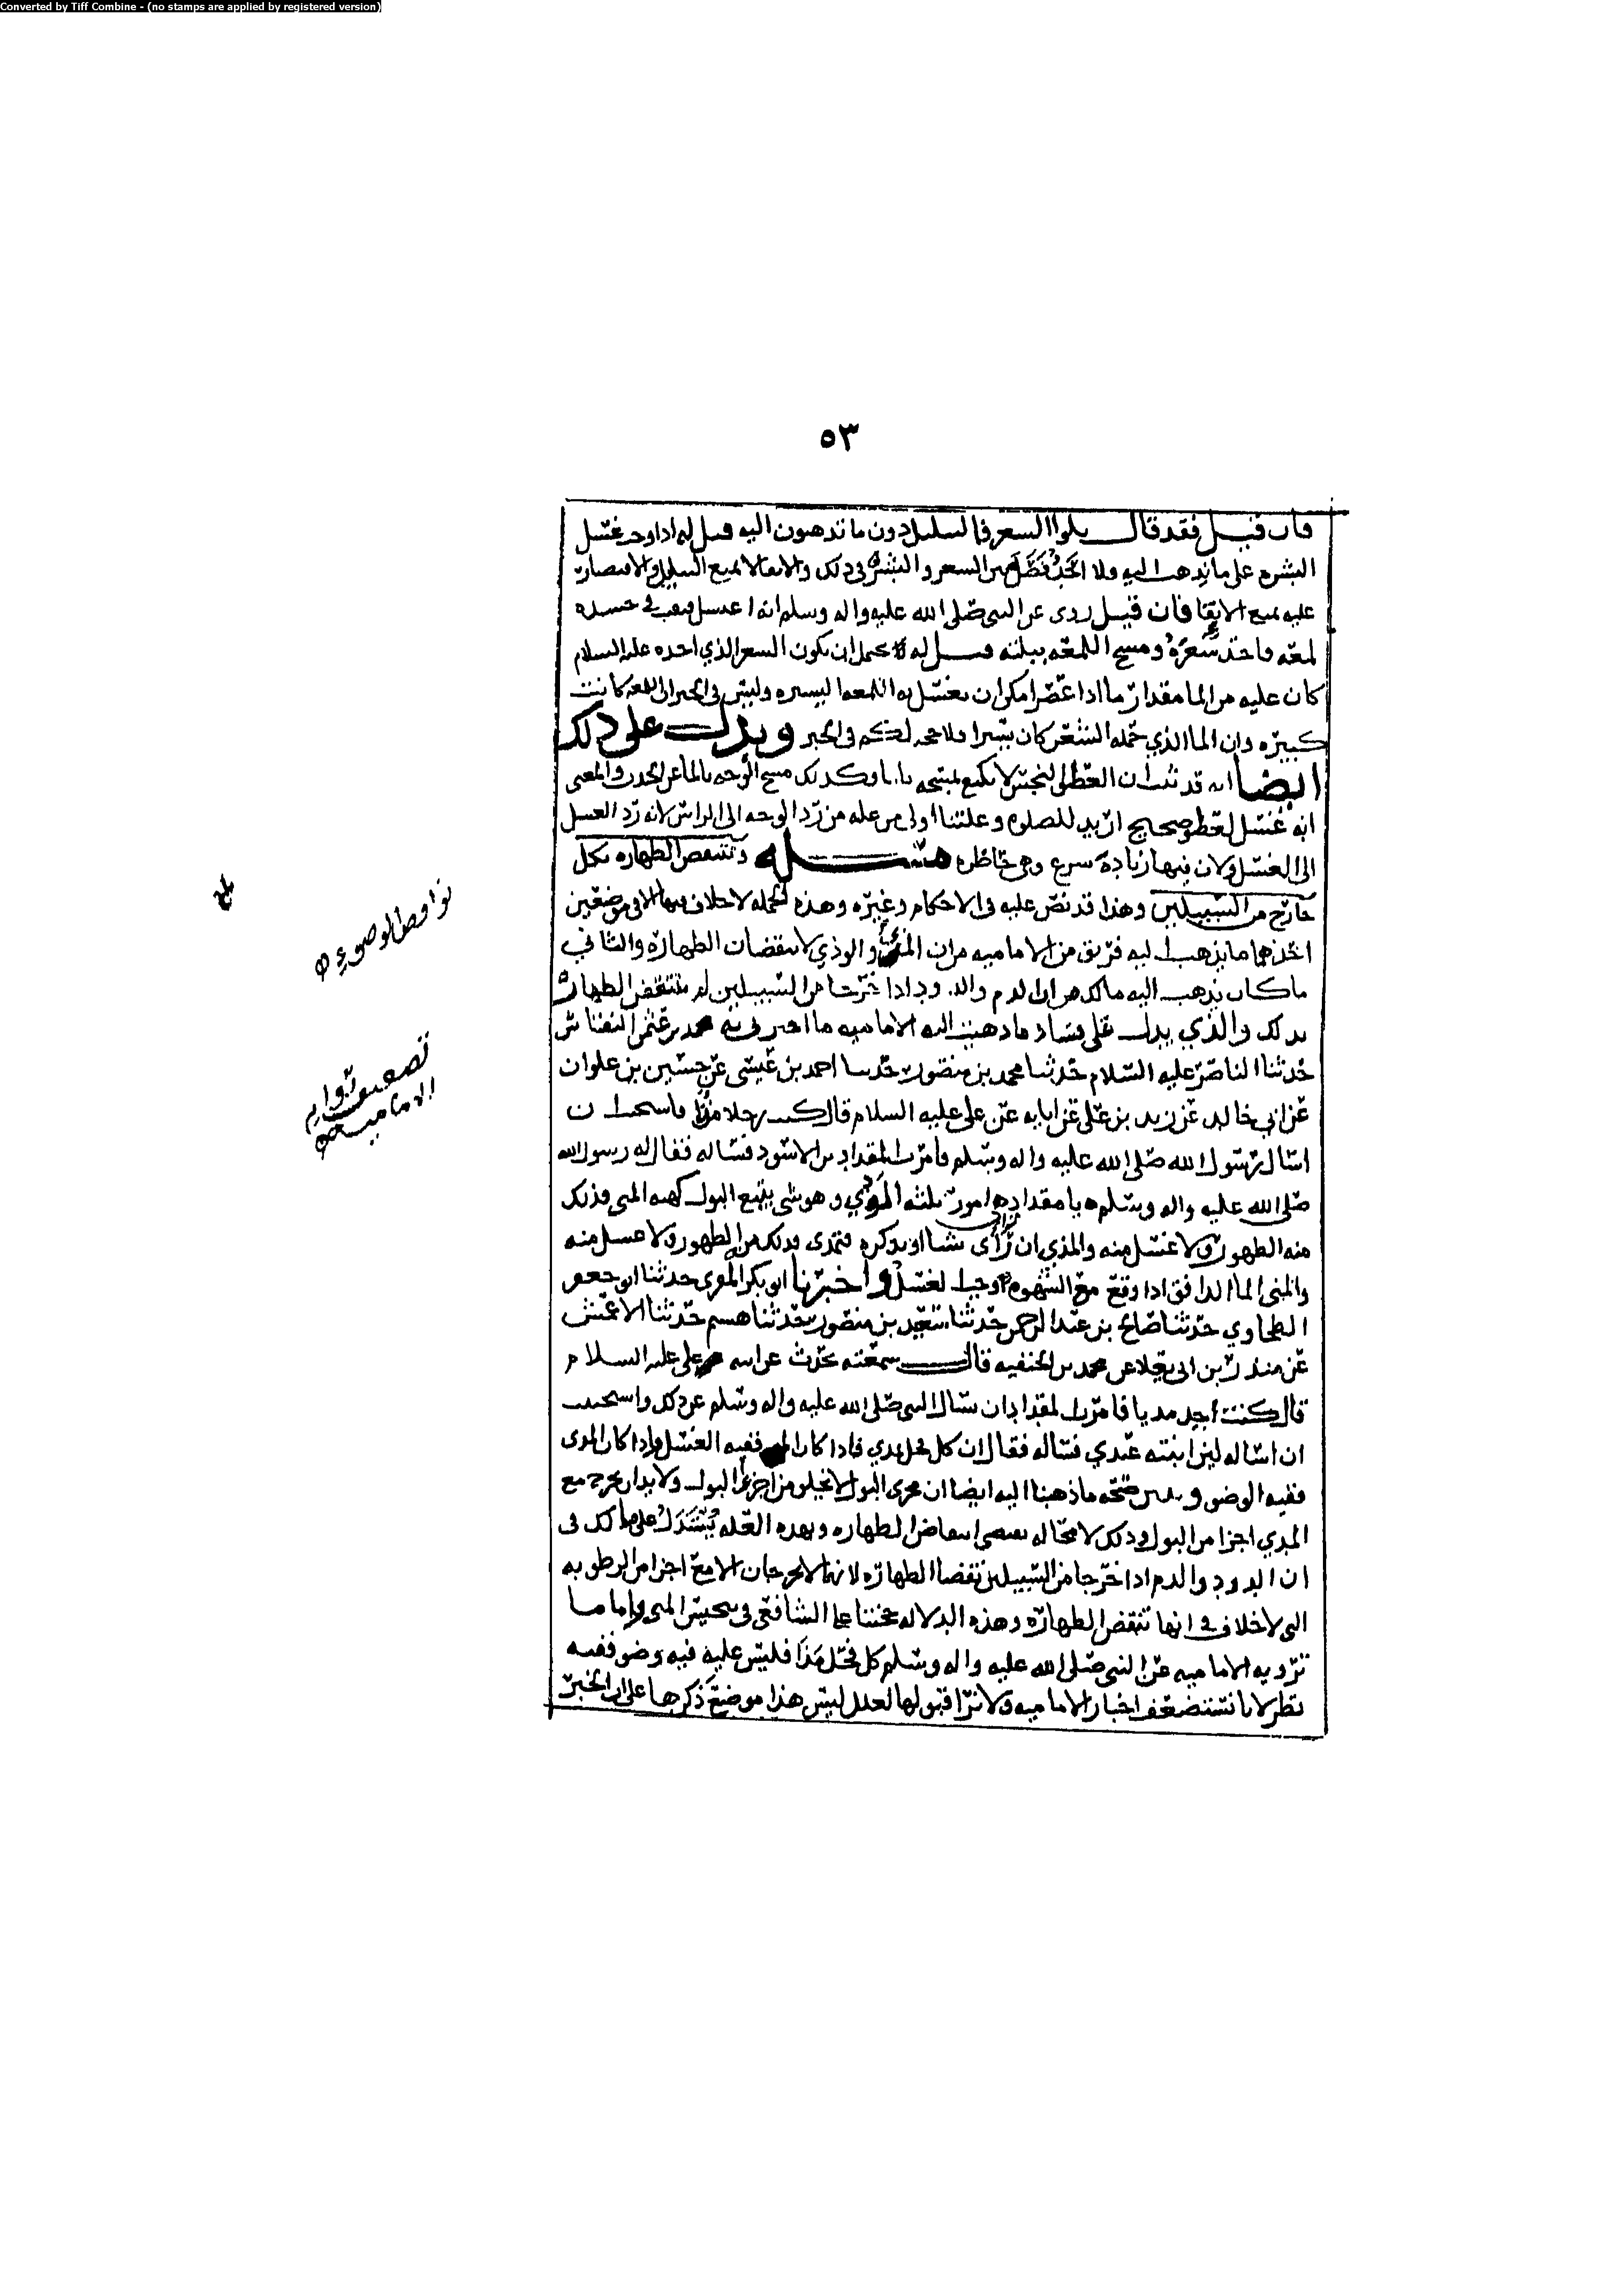 Converted by Tiff Combine - (no stamps are applied by registered version)
٥٣
فان قيل فقد قال بلوا الشعر فالسلل دون ما تذهبون اليه قيل له اذا وجب غسل
البشره على ما يذهب اليه ولا احد فصل بين الشعر والبشره في ذلك والانقا لا يمنع البلل والاقتصار
عليه يمنع الانقا فان قيل روى عن النبي صلى الله عليه واله وسلم انه اغتسل فبقيت في جسده
لمعه فاخذ شعره ومسح اللمعه ببلته قيل له يحتمل ان يكون الشعر الذي اخذه عليه السلام
كان عليه من الما مقدار ما اذا عصر امكن ان يغسل به اللمعه اليسيره وليس في الخبر ان اللمعه كانت
كبيره وان الما الذي حمله الشعر كان يسيرا فلا حجه لكم في الخبر ويدل على ذلك
ايضا انه قد ثبت ان العضو النجس لا يكفي مسحه بالما وكذلك مسح الوجه بالما عن الحدث والمعنى
انه غسل لعضو صحيح اريد للصلوه وعلتنا اولى من عله من رد الوجه الى الراس لانه رد الغسل
الى الغسل ولان فيها زيادة شرع وهي حاظره مسئله وتنتقض الطهاره بكل
خارج من السبيلين وهذا قد نص عليه في الاحكام وغيره وهذه الجمله لا خلاف فيها الا في موضعين
احدهما ما يذهب اليه فريق من الاماميه من ان المذي والودي لا ينقضان الطهاره والثاني
ما كان يذهب اليه مالك من ان الدم والدود اذا خرجا من السبيلين لم تنتقض الطهاره
بذلك والذي يدل على فساد ما ذهبت اليه الاماميه ما اخبرني به محمد بن عثمن النقاش
حدثنا الناصر عليه السلام حدثنا محمد بن منصور حدثنا احمد بن عيسى عن حسين بن علوان
عن ابي خالد عن زيد بن علي عن ابايه عن علي عليه السلام قال كنت رجلا مذا فاستحييت ان
اسال رسول الله صلى الله عليه واله وسلم فامرت المقداد بن الاسود فساله فقال له رسول الله
صلى الله عليه واله وسلم يا مقداد هي امور ثلثه الودي وهو شي يتبع البول كهيه المني فذلك
منه الطهور ولا غسل منه والمذي ان ترى شيا او تذكره فتمذى فذلك منه الطهور ولا غسل منه
والمني الما الدافق اذا وقع مع الشهوه اوجب الغسل واخبرنا ابو بكر المقري حدثنا ابو جعفر
الطحاوي حدثنا صالح بن عبد الرحمن حدثنا سعيد بن منصور حدثنا هشيم حدثنا الاعمش
عن منذر بن ابي يعلا عن محمد بن الحنفيه قال سمعته يحدث عن ابيه علي عليه السلام
قال كنت اجد مذيا فامرت المقداد ان يسال النبي صلى الله عليه واله وسلم عن ذلك واستحييت
ان اساله لان ابنته عندي فساله فقال ان كل فحل يمذي فاذا كان المني ففيه الغسل واذا كان المذى
ففيه الوضو ويبين صحه ما ذهبنا اليه ايضا ان مجرى البول لا يخلو من اجزا البول ولا بد ان يخرج مع
المذي اجزا من البول وذلك لا محاله يقتضي انتقاض الطهاره وبهذه العله يستدل على مالك في
ان الدود والدم اذا خرجا من السبيلين نقضا الطهاره لانهما لا يخرجان الا مع اجزا من الرطوبه
التي لا خلاف في انها تنقض الطهاره وهذه الدلاله حجتنا على الشافعي في تنجيس المني واما ما
ترويه الاماميه عن النبي صلى الله عليه واله وسلم كل فحل مذا فليس عليه فيه وضو ففيه
نظر لانا نستضعف اخبار الاماميه ولا نرا قبولها لعلل ليس هذا موضع ذكرها على ان الخبر
نواقض الوضوء
تضعيف روايه
الاماميه